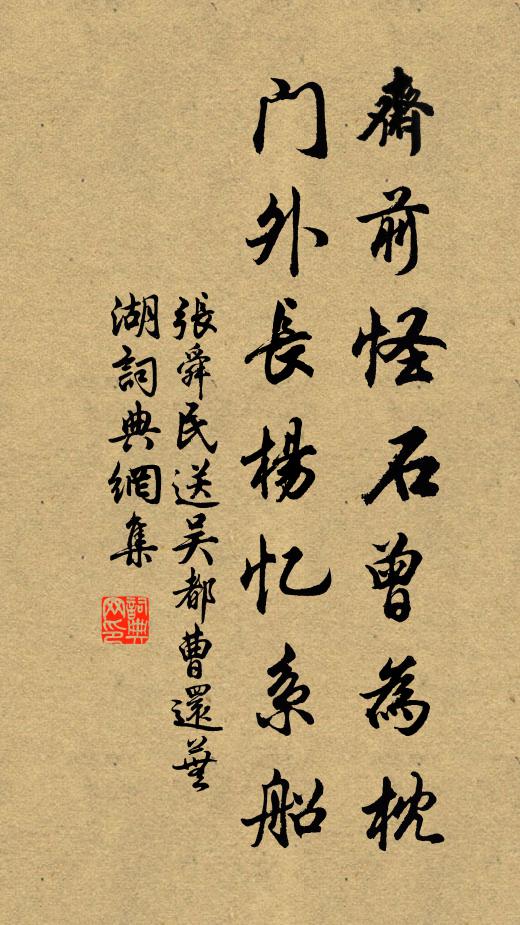 齋前怪石曾為枕
門外長楊忆系船
張舜民送吴都曹還蕪
湖詞典網集
詞典网印